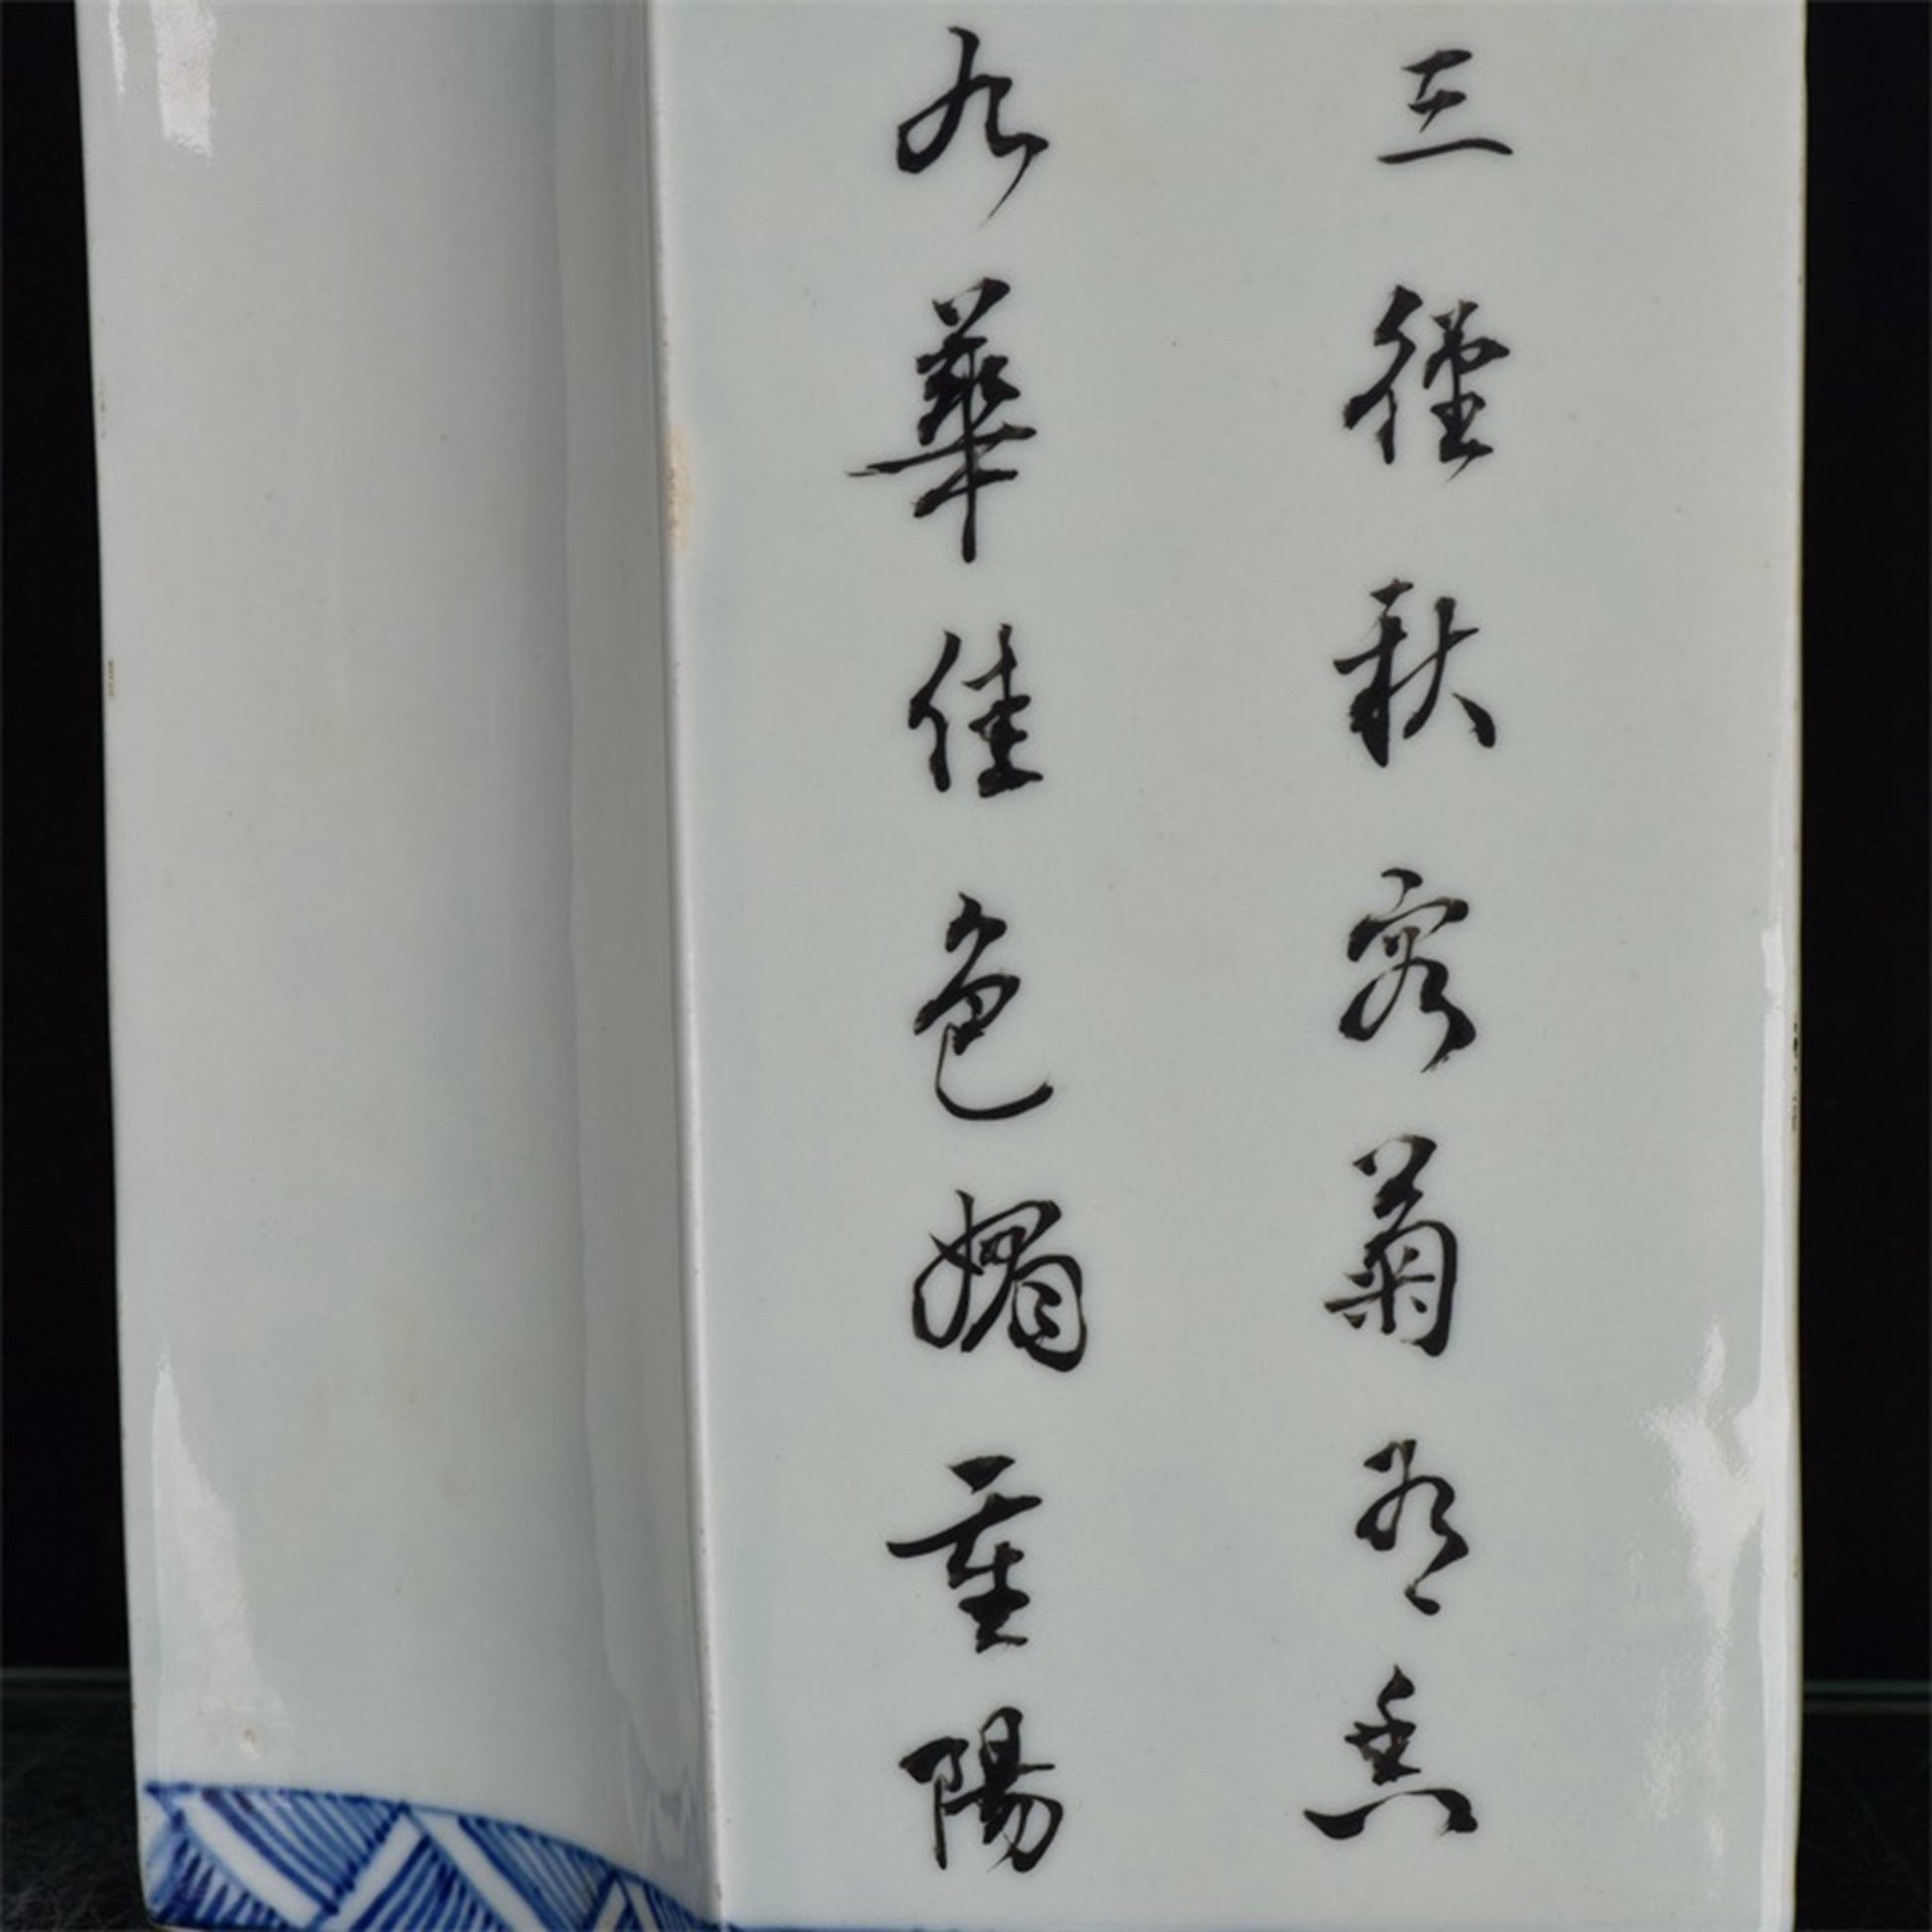 三徑秋容菊有
九華佳色媚重陽